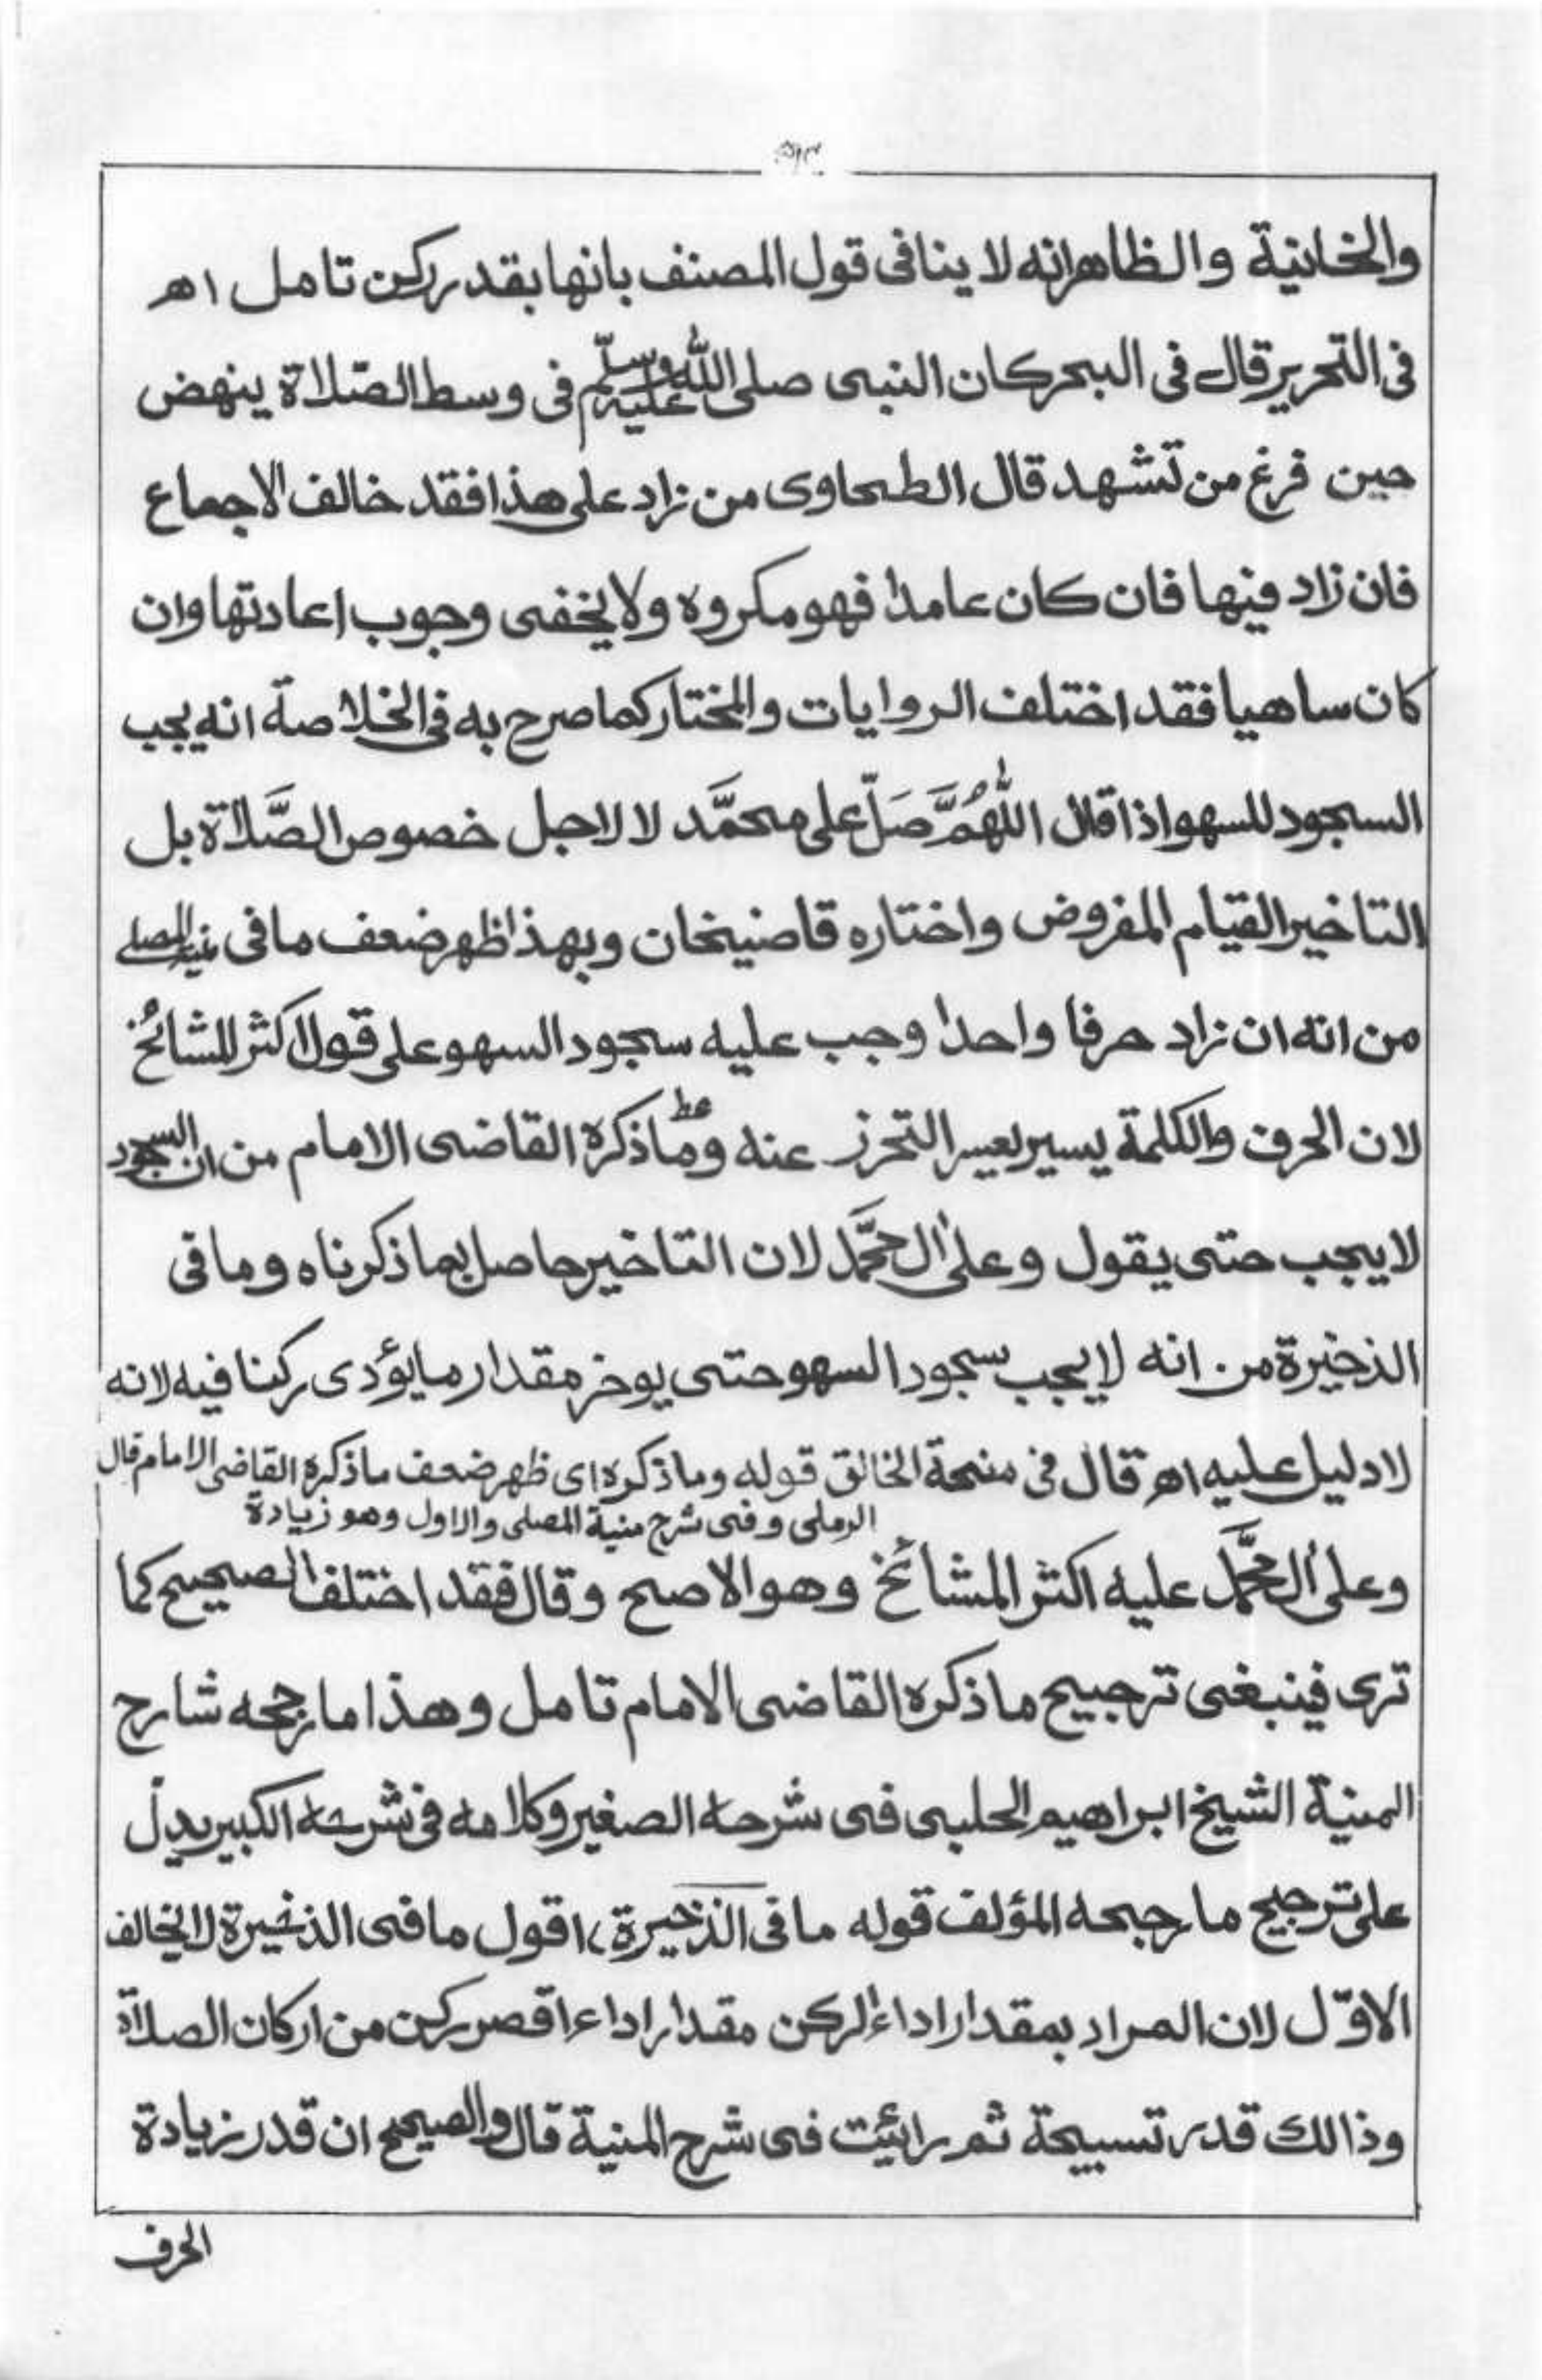 ۵۱۳
والخانية والظاهرانه لا ينافى قول المصنف بانها بقدر ركن تامل اھ
فى التحرير قال فى البحر كان النبى صلى الله عليه وسلم فى وسط الصلاة ينهض
حين فرغ من تشهد قال الطحاوى من زاد على هذا فقد خالف الاجماع
فان زاد فيها فان كان عامدا فهو مكروه ولا يخفى وجوب اعادتها وان
كان ساهيا فقد اختلف الروايات والمختار كما صرح به فى الخلاصة انه يجب
السجود للسهو اذا قال اللّٰهُمَّ صَلِّ على محمَّد لا لاجل خصوص الصَّلاة بل
التاخير القيام المفروض واختاره قاضيخان وبهذا ظهر ضعف ما فى منية المصلى
من انه ان زاد حرفا واحدا وجب عليه سجود السهو على قول اكثر المشائخ
لان الحرف والكلمة يسير يعسر التحرز عنه وما ذكره القاضى الامام من ان السجود
لا يجب حتى يقول وعلىٰ اٰل محمَّد لان التاخير حاصل بما ذكرناه وما فى
الذخيرة من انه لا يجب سجود السهو حتى يوخر مقدار ما يؤدى ركنا فيه لانه
لا دليل عليه اھ قال فى منحة الخالق قوله وما ذكره اى ظهر ضعف ما ذكره القاضى الامام قال
الرملى وفى شرح منية المصلى والاول وهو زيادة
وعلىٰ اٰل محمَّد عليه اكثر المشائخ وهو الاصح وقال فقد اختلف الصحيح كما
ترى فينبغى ترجيح ما ذكره القاضى الامام تامل وهذا ما رجحه شارح
المنية الشيخ ابراهيم الحلبى فى شرحه الصغير وكلامه فى شرحه الكبير يدل
على ترجيح ما رجحه المؤلف قوله ما فى الذخيرة، اقول ما فى الذخيرة لا يخالف
الاوّل لان المراد بمقدار اداء الركن مقدار اداء اقصر ركن من اركان الصلاة
وذالك قدر تسبيحة ثم رائيت فى شرح المنية قال والصحيح ان قدر زيادة
الحرف